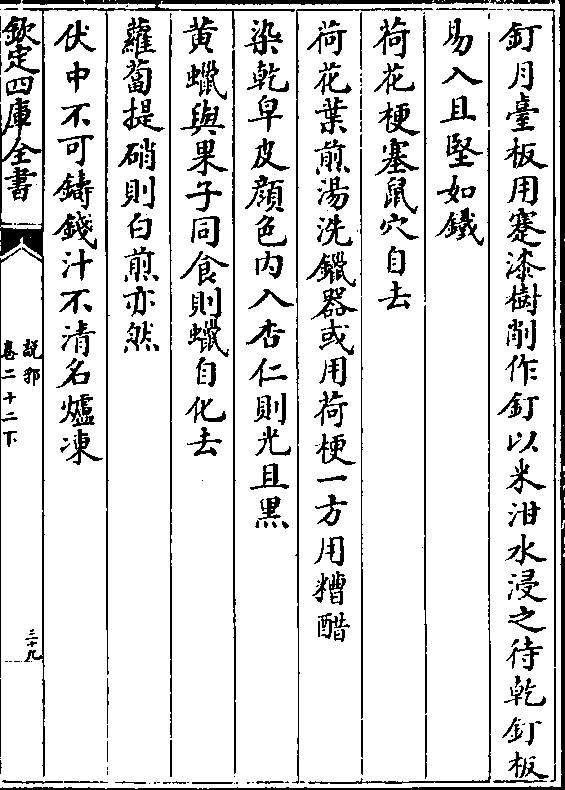 釘月臺板用蹇漆樹削作釘以米泔水浸之待乾釘板
易入且堅如鐵
荷花梗塞鼠穴自去
荷花葉煎湯洗鑞器或用荷梗一方用糟醋
染乾皁皮顔色内入杏仁則光且黒
黄蠟與果子同食則蠟自化去
蘿蔔提硝則白煎亦然
伏中不可鑄錢汁不清名爐凍
欽定四庫全書
說郛
卷二十二下
三十九